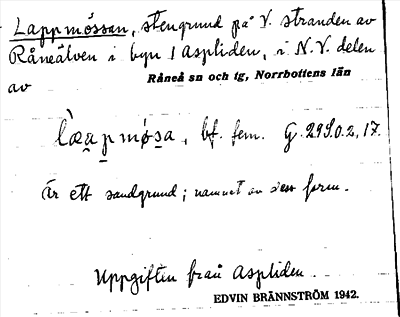 Lappmössan, stengrund på V. stranden av
Råneälven i byn 1 Aspliden, i N.V. delen
av
Råneå sn och tg, Norrbottens län
bf. fem.
Är ett sandgrund; namnet av dess form.
Uppgiften från Aspliden.
EDVIN BRÄNNSTRÖM 1942.